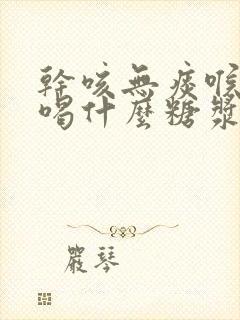 幹咳無痰喉
喝什麼糖漿
嚴琴